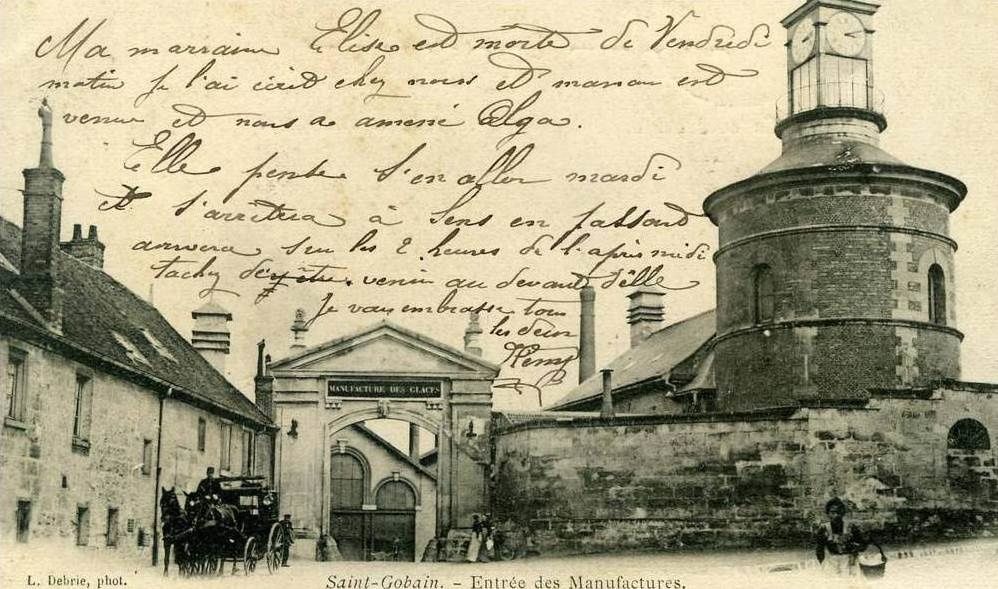 Ma marraine Elise est morte de Vendredi
matin je l'ai écrit chez nous et maman est
venue et nous a amené Olga.
Elle pense s'en aller mardi
et s'arrêtera à Sens en passant
arrivera sur les 2 heures de l'après midi
tachez d'y être venir au devant d'elle
Je vous embrasse tous
les deux
MANUFACTURE DES GLACES
L. Debrie, phot.
Saint-Gobain. - Entrée des Manufactures.